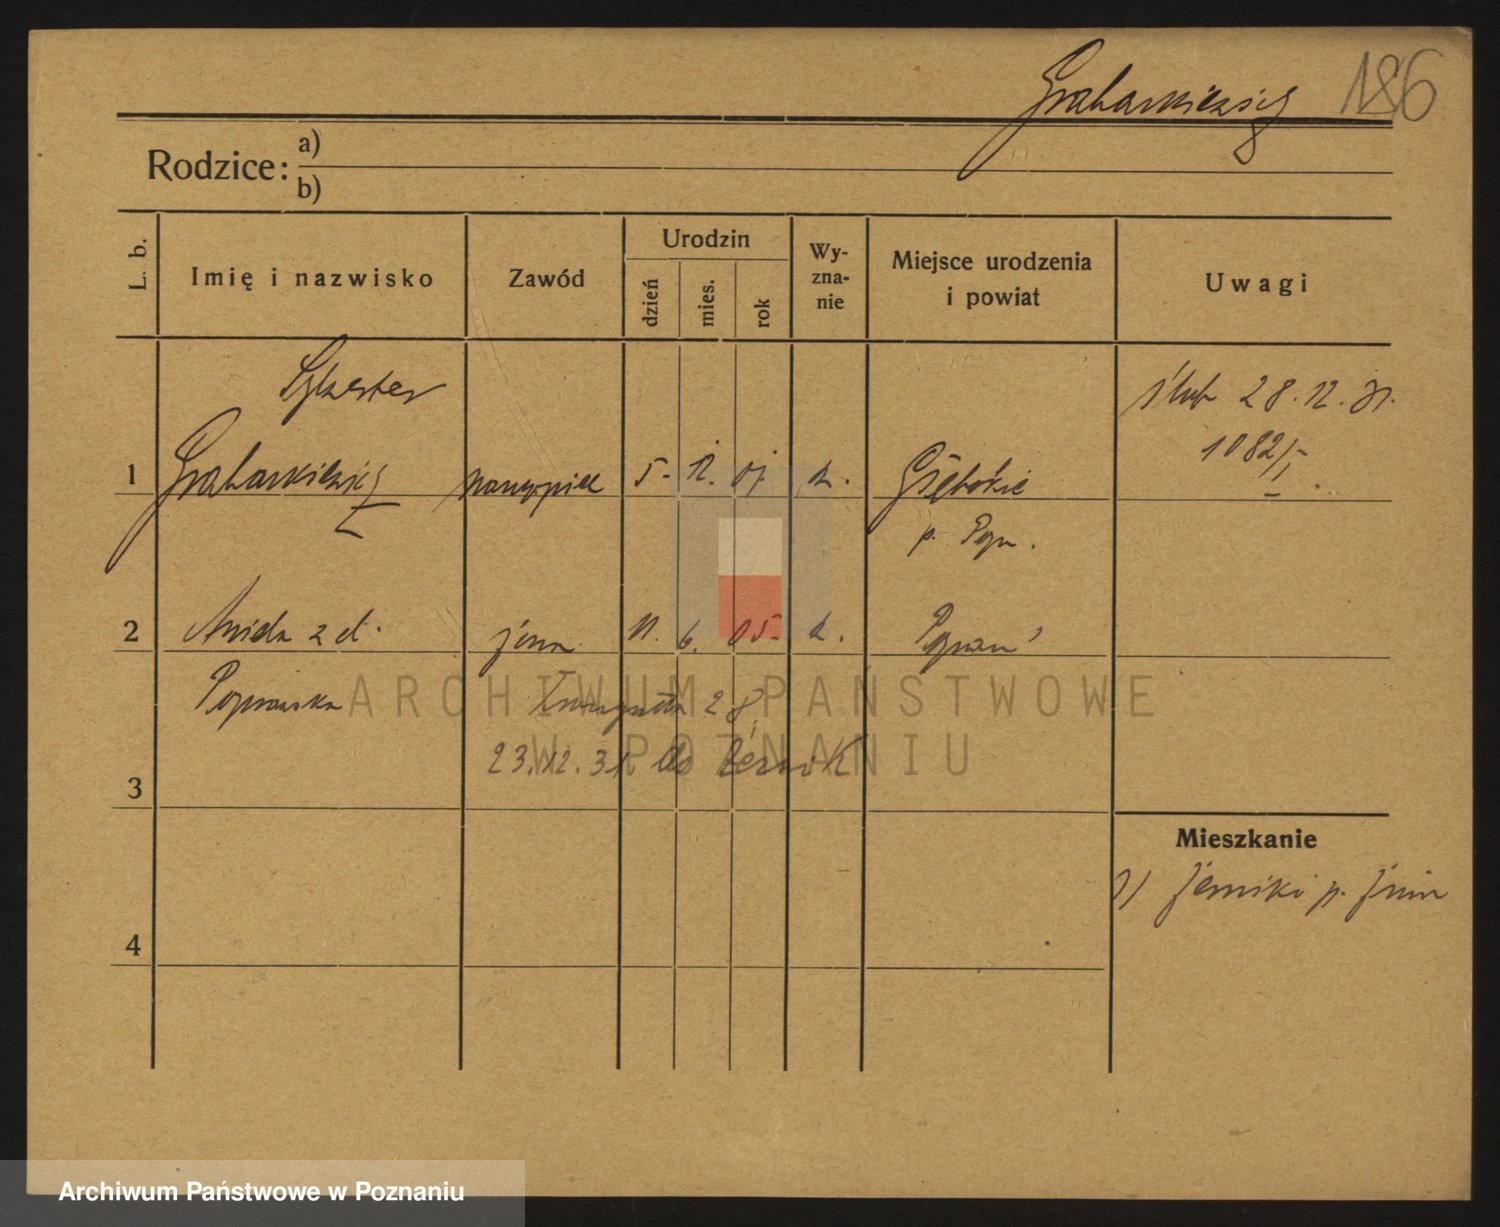 Grabarkiewicz 186
Rodzice: a)
b)
L. b.
Imię i nazwisko
Zawód
Urodzin
dzień
mies.
rok
Wy-
zna-
nie
Miejsce urodzenia
i powiat
Uwagi
Sylwester
ślub 28.12.31.
1082/I
1 Grabarkiewicz 5. 12. k.
p. Pozn.
2 z d. żona 11. 6. 05 k. Poznań
28
ARCHIWUM PAŃSTWOWE
W POZNANIU
23.12.31 do
3
Mieszkanie
1) p. Żnin
4
Archiwum Państwowe w Poznaniu